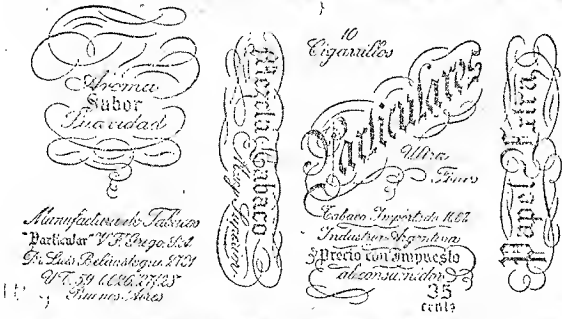 Aroma
Sabor
Suavidad
Manufactura de Tabacos
"Particular" V.F. Grego. S.A
Dr. Luis Beláustegui 2701
U.T. 59
Buenos Aires
Mezcla Tabaco
Muy Superior
10
Cigarrillos
Particulares
Ultra
Finos
Tabaco Importado
Industria Argentina
Precio con Impuesto
al consumidor
35
cents
Papel Extra